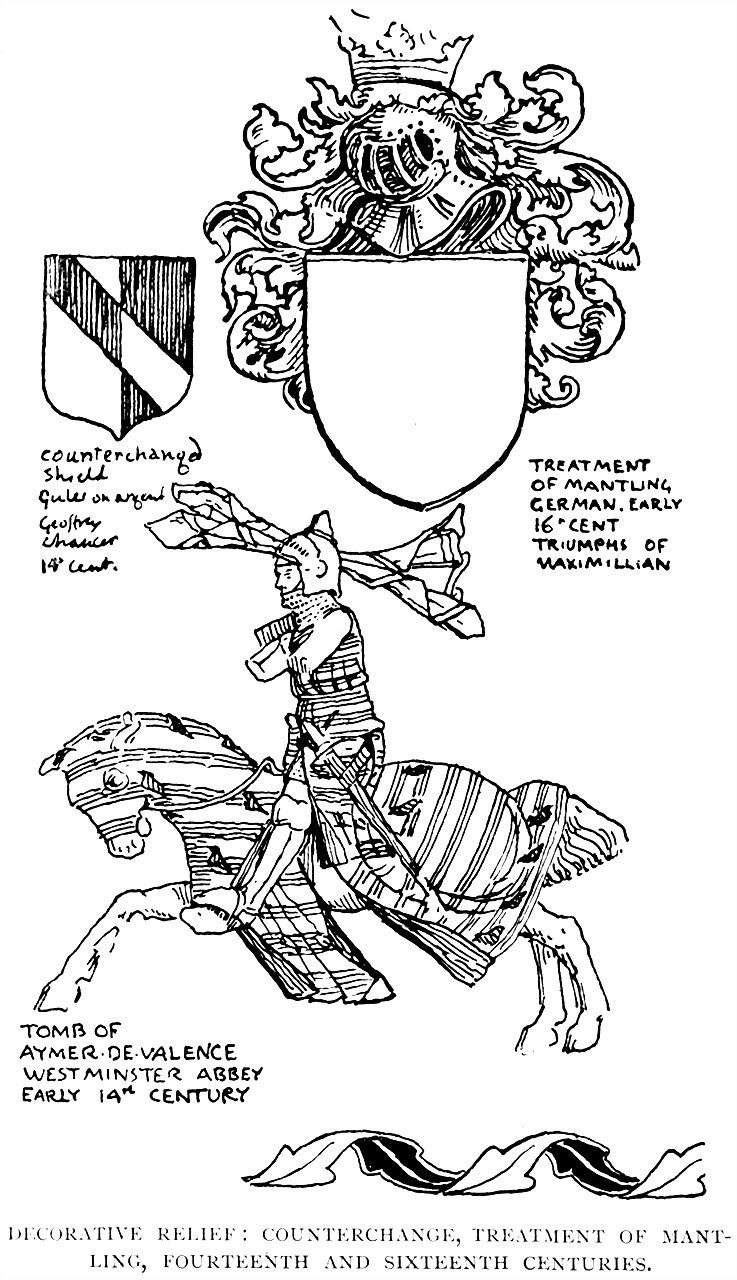 counterchanged
Shield
Gules on argent
Geoffrey
Chaucer
14th cent.
TREATMENT
OF MANTLING
GERMAN. EARLY
16th CENT
TRIUMPHS OF
MAXIMILLIAN
TOMB OF
AYMER·DE·VALENCE
WESTMINSTER ABBEY
EARLY 14TH CENTURY
DECORATIVE RELIEF: COUNTERCHANGE, TREATMENT OF MANT-
LING, FOURTEENTH AND SIXTEENTH CENTURIES.